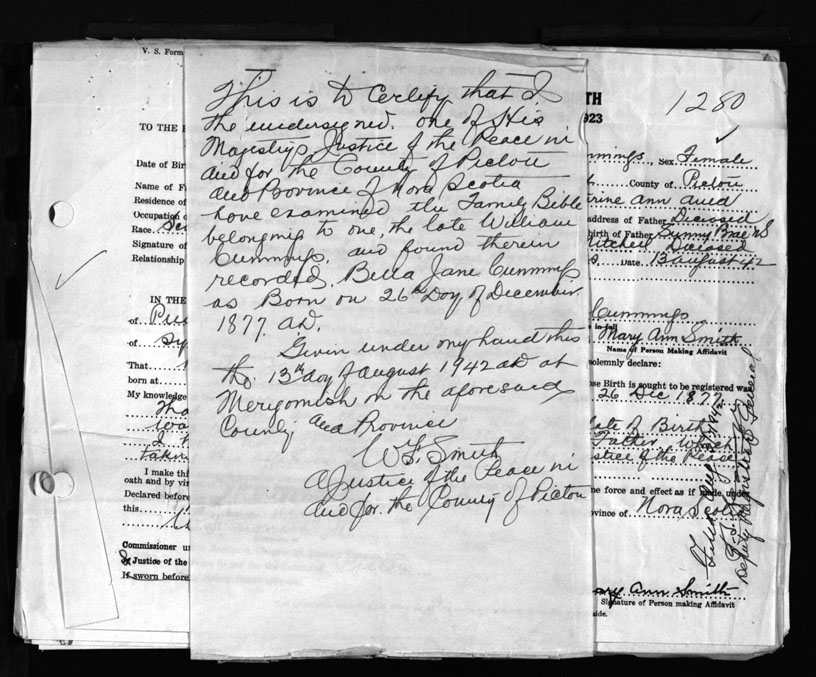 V. S. Form
TH
1280
923
TO THE
This is to Certify that I
the undersigned. one of His
Magestys Justice of the Peace in
and for the County of Pictou
and Province of Nova Scotia
have examined the Family Bible
belonging to one, the late William
Cummings, and found therein
recorded. Bella Jane Cummings
as Born on 26th Day of December.
1877. AD.
Given under my hand this
the 13th day of August 1942 AD at
Merigomish in the aforesaid
County and Province
W S. Smith
A Justice of the Peace in
and for the County of Pictou
Date of Bir
Name of F
Residence of
Occupation o
Race
Signature of
Relationship
IN THE
of
of
That
born at
My knowledge
taken
I make thi
oath and by vir
Declared before
this
Commissioner u
Justice of the
If sworn before
mmings, Sex Female
County of Pictou
rine Ann
address of Father Diceased
birth of Father Sunny Brae NS
Mitchell Diceased
Date 13 August 42
Cummings
e in full
Mary Ann Smith
Name of Person Making Affidavit
solemnly declare:
ose Birth is sought to be registered was
26 Dec 1877
ate of Birth
Father which
stice of the Peace
me force and effect as if made under
ovince of Nova Scotia
ary Ann Smith
Signature of Person making Affidavit
side.
Deputy Registrar General